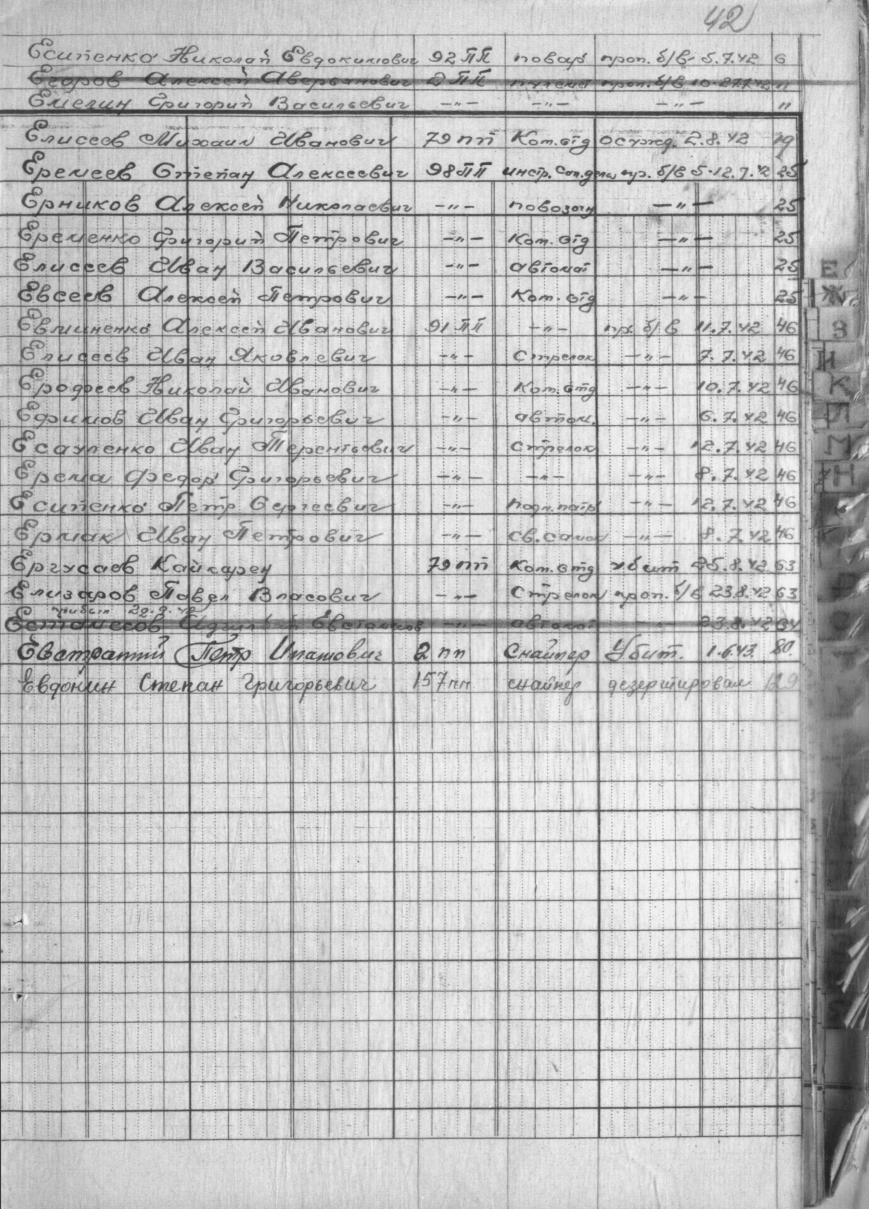 42
Есипенко Николай Евдокимович 92 ПП повар проп. б/в 5.7.42 6
Егоров Алексей Аверьянович 2 ПП проп. б/в
Емелин Григорий Васильевич -"- -"- -"- "
Елисеев Михаил Иванович 79 пп Ком. отд осужд. 2.8.42 19
Еремеев Степан Алексеевич 98 ПП инстр. пр. б/в 5-12.7.42 25
Ерников Алексей Николаевич -"- повозочн -"- 25
Еременко Григорий Петрович -"- Ком. отд -"- 25
Елисеев Иван Васильевич -"- автомат -"- 25
Евсеев Алексей Петрович -"- Ком. отд -"- 25
Евлиненко Алексей Иванович 91 ПП -"- пр. б/в 11.7.42 46
Елисеев Иван Яковлевич -"- стрелок -"- 7.7.42 46
Ерофеев Николай Иванович -"- Ком. отд -"- 10.7.42 46
Ефимов Иван Григорьевич -"- автом. -"- 6.7.42 46
Есауленко Иван Терентьевич -"- стрелок -"- 12.7.42 46
Ерема Федор Григорьевич -"- -"- -"- 8.7.42 46
Есипенко Петр Сергеевич -"- -"- 12.7.42 46
Ермак Иван Петрович -"- -"- 8.7.42 46
Ергусаев 79 пп Ком. отд убит 25.8.42 63
Елизаров Павел Власович -"- Стрелок проп. б/в 23.8.42 63
прибыл 22.9.42
-"- автомат -"- 23.8.42 64
Евстратий Петр Ипатович 2 пп Снайпер Убит. 1.6.43. 80.
Евдокин Степан Григорьевич 157 пп снайпер дезертировал 129
Е
Ж
З
И
К
Л
М
Н